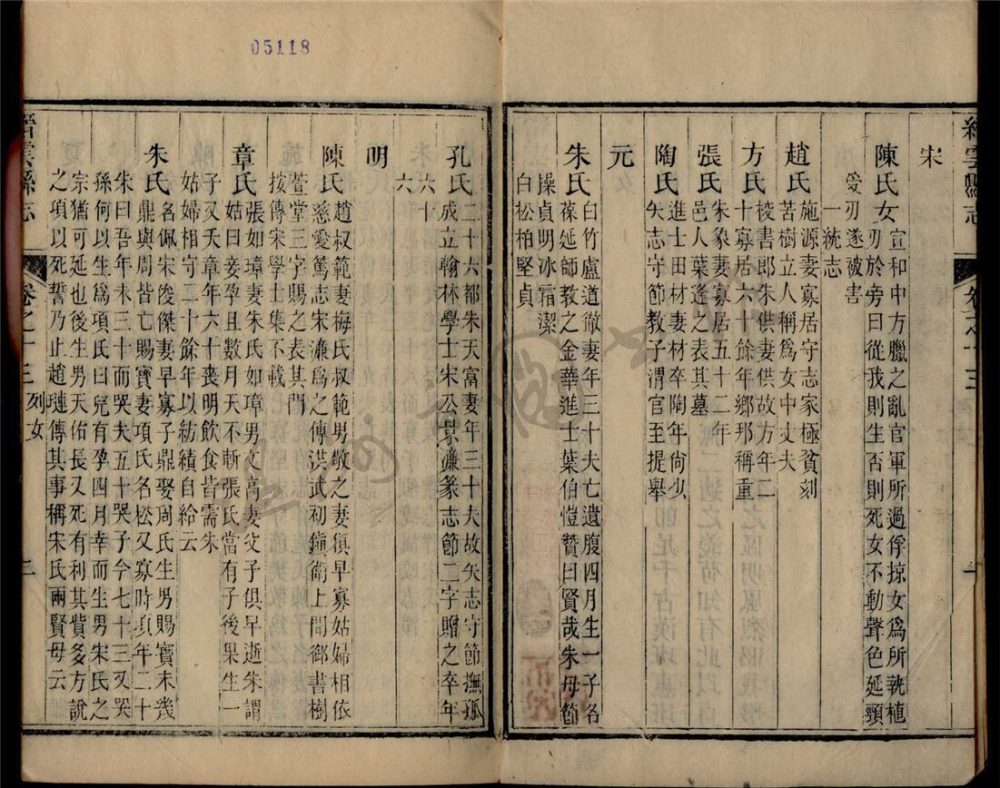 05118
縉雲縣志
卷之十三
宋
陳氏女宣和中方臘之亂官軍所過俘掠女為所執植
刃於旁曰從我則生否則死女不動聲色延頸
受刃遂被害
一統志
趙氏施源妻寡居守志家極貧刻
苦樹立人稱為女中丈夫
方氏校書郎朱供妻供故方年二
十寡居六十餘年鄉邦稱重
張氏朱象妻寡居五十二年
邑人葉逢之表其墓
陶氏進士田材妻材卒陶年尚少
矢志守節教子渭官至提舉
元
朱氏白竹盧道徹妻年三十夫亡遺腹四月生一子名
葆延師教之金華進士葉伯愷贊曰賢哉朱母節
操貞明冰霜潔
白松柏堅貞
孔氏二十六都朱天富妻年三十夫故矢志守節撫孤
成立翰林學士宋公景濂篆志節二字贈之卒年
六十
六
明
陳氏趙叔範妻梅氏叔範男敬之妻俱早寡姑婦相依
慈愛篤志宋濂為之傳洪武初鍾衛上聞御書樹
萱堂三字賜之表其門
按傳宋學士集不載
章氏張如璋妻朱氏如璋男文高妻父子俱早逝朱謂
姑曰妾孕且數月天不斬張氏當有子後果生一
子又夭章年六十喪明飲食皆需朱
姑婦相守二十餘年以紡績自給云
朱氏名佩宋浚傑妻早寡子鼎娶周氏生男賜寶未幾
鼎與周皆亡賜寶妻項氏名松又寡時項年二十
朱曰吾年未三十而哭夫五十哭子今七十三又哭
孫何以生為項氏曰兒有孕四月幸而生男宋氏之
宗猶可延也後生男天佑長又死有利其貲多方說
之項以死誓乃止趙璉傳其事稱宋氏兩賢母云
縉雲縣志
卷之十三
列女
三